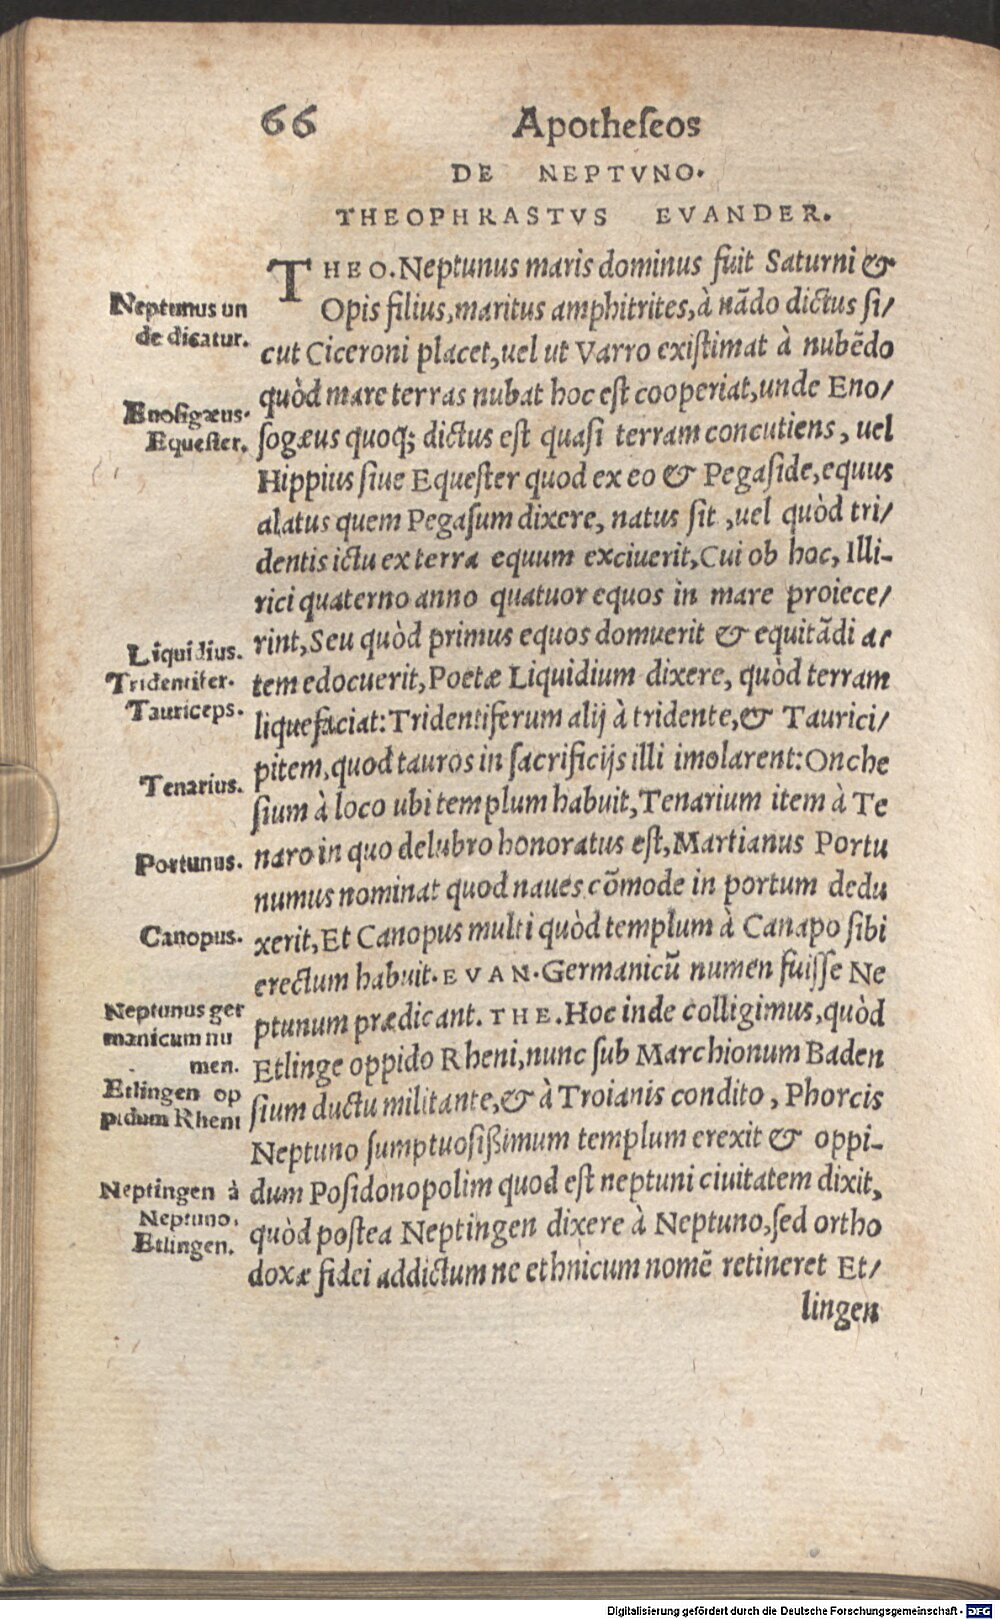 66 Apotheſeos
DE NEPTVNO.
THEOPHRASTVS EVANDER.
THEO. Neptunus maris dominus fuit Saturni &
Opis filius, maritus amphitrites, à nãdo dictus ſi/
cut Ciceroni placet, uel ut Varro exiſtimat à nubẽdo
quòd mare terras nubat hoc eſt cooperiat, unde Eno/
ſogæus quoq; dictus eſt quaſi terram concutiens, uel
Hippius ſiue Equeſter quod ex eo & Pegaſide, equus
alatus quem Pegaſum dixere, natus ſit, uel quòd tri/
dentis ictu ex terra equum exciuerit, Cui ob hoc, Illi-
rici quaterno anno quatuor equos in mare proiece/
rint, Seu quòd primus equos domuerit & equitãdi ar
tem edocuerit, Poetæ Liquidium dixere, quòd terram
liquefaciat: Tridentiferum alij à tridente, & Taurici/
pitem, quod tauros in ſacrificijs illi imolarent: Onche
ſium à loco ubi templum habuit, Tenarium item à Te
naro in quo delubro honoratus eſt, Martianus Portu
numus nominat quod naues cõmode in portum dedu
xerit, Et Canopus multi quòd templum à Canapo ſibi
erectum habuit. EVAN. Germanicũ numen fuiſſe Ne
ptunum prædicant. THE. Hoc inde colligimus, quòd
Etlinge oppido Rheni, nunc ſub Marchionum Baden
ſium ductu militante, & à Troianis condito, Phorcis
Neptuno ſumptuoſißimum templum erexit & oppi-
dum Poſidonopolim quod eſt neptuni ciuitatem dixit,
quòd poſtea Neptingen dixere à Neptuno, ſed ortho
doxæ fidei addictum ne ethnicum nomẽ retineret Et/
lingen
Neptunus un
de dicatur.
Enoſigæus.
Equeſter.
Liquidius.
Tridentifer.
Tauriceps.
Tenarius.
Portunus.
Canopus.
Neptunus ger
manicum nu
men.
Etlingen op
pidum Rheni
Neptingen à
Neptuno.
Etlingen.
Digitalisierung gefördert durch die Deutsche Forschungsgemeinschaft - DFG